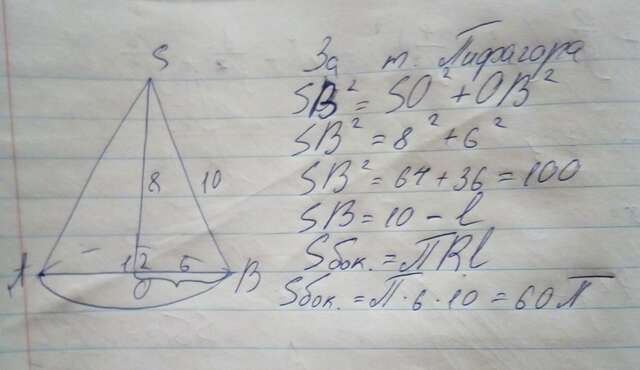 S
8
10
A
12
6
B
O
За т. Піфагора
SB² = SO² + OB²
SB² = 8² + 6²
SB² = 64 + 36 = 100
SB = 10 - l
Sбок. = ПRl
Sбок. = П · 6 · 10 = 60П